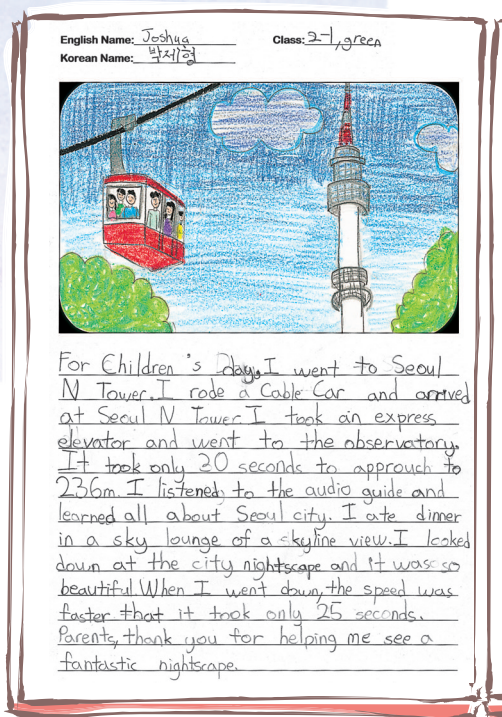 English Name: Joshua Class: 2-1, green
Korean Name: 박제형
For Children 's day, I went to Seoul
N Tower. I rode a Cable Car and arrived
at Seoul N Tower. I took an express
elevator and went to the observatory.
It took only 30 seconds to approuch to
236m. I listened to the audio guide and
learned all about Seoul city. I ate dinner
in a sky lounge of a skyline view. I looked
down at the city nightscape and it was so
beautiful. When I went down, the speed was
faster that it took only 25 seconds.
Parents, thank you for helping me see a
fantastic nightscape.